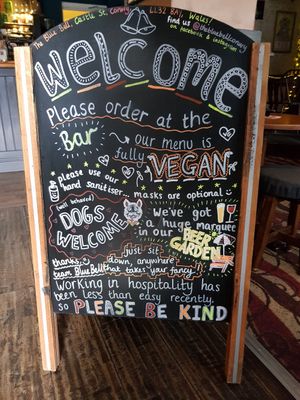 The Blue Bell, Castle St, Conwy, LL32 8AY, Wales!
find us on @thebluebellconwy
on facebook & instagram!
WELCOME
Please order at the
Bar
our menu is
fully VEGAN
please use our
hand sanitiser...
masks are optional :)
(well behaved)
DOGS
WELCOME
We've got
a huge marquee
in our
BEER
GARDEN!
just sit
down, anywhere
that takes your fancy!
thanks,
team Blue Bell
Working in hospitality has
been less than easy recently,
so PLEASE BE KIND